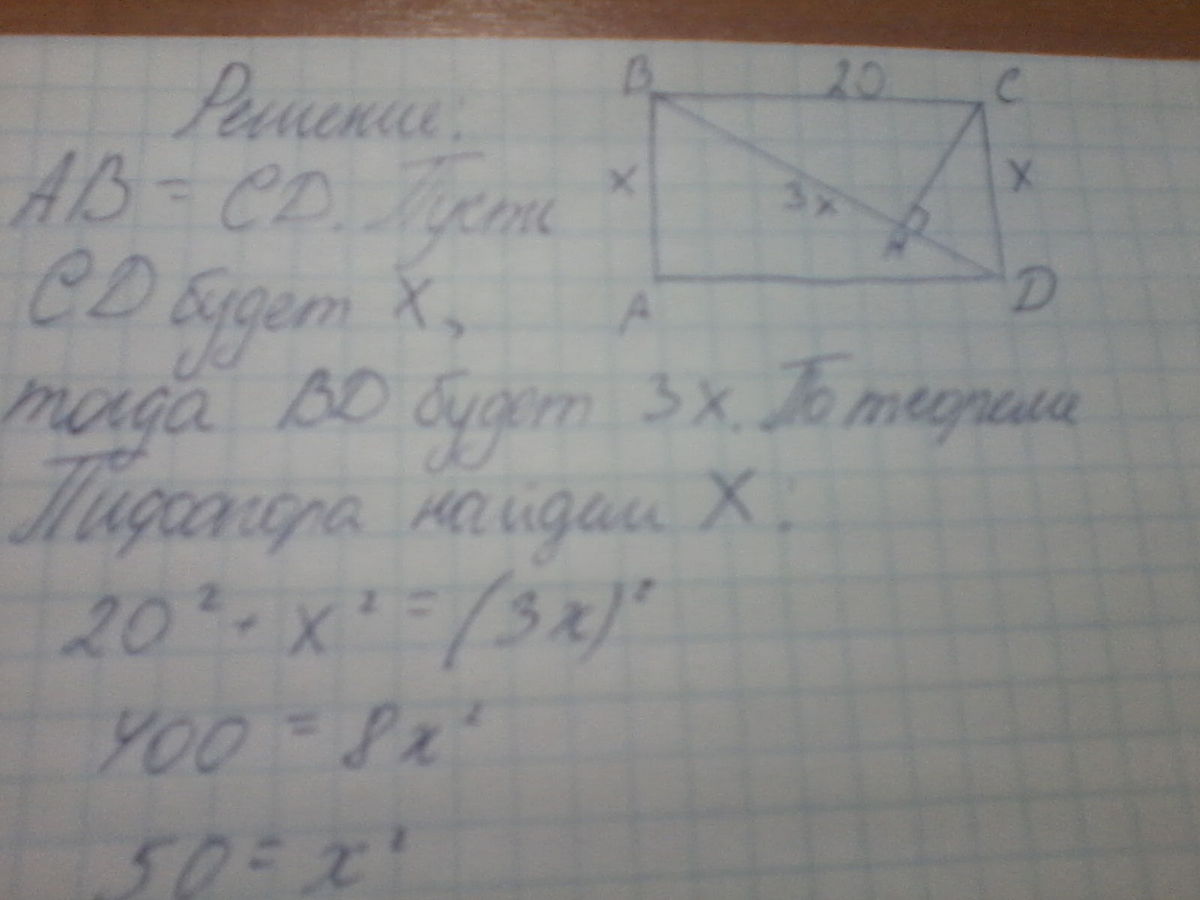 Решение:
AB = CD. Пусть
CD будет x,
тогда BD будет 3x. По теореме
Пифагора найдем X:
20² + x² = (3x)²
400 = 8x²
50 = x²
B 20 C
x 3x x
H
A D